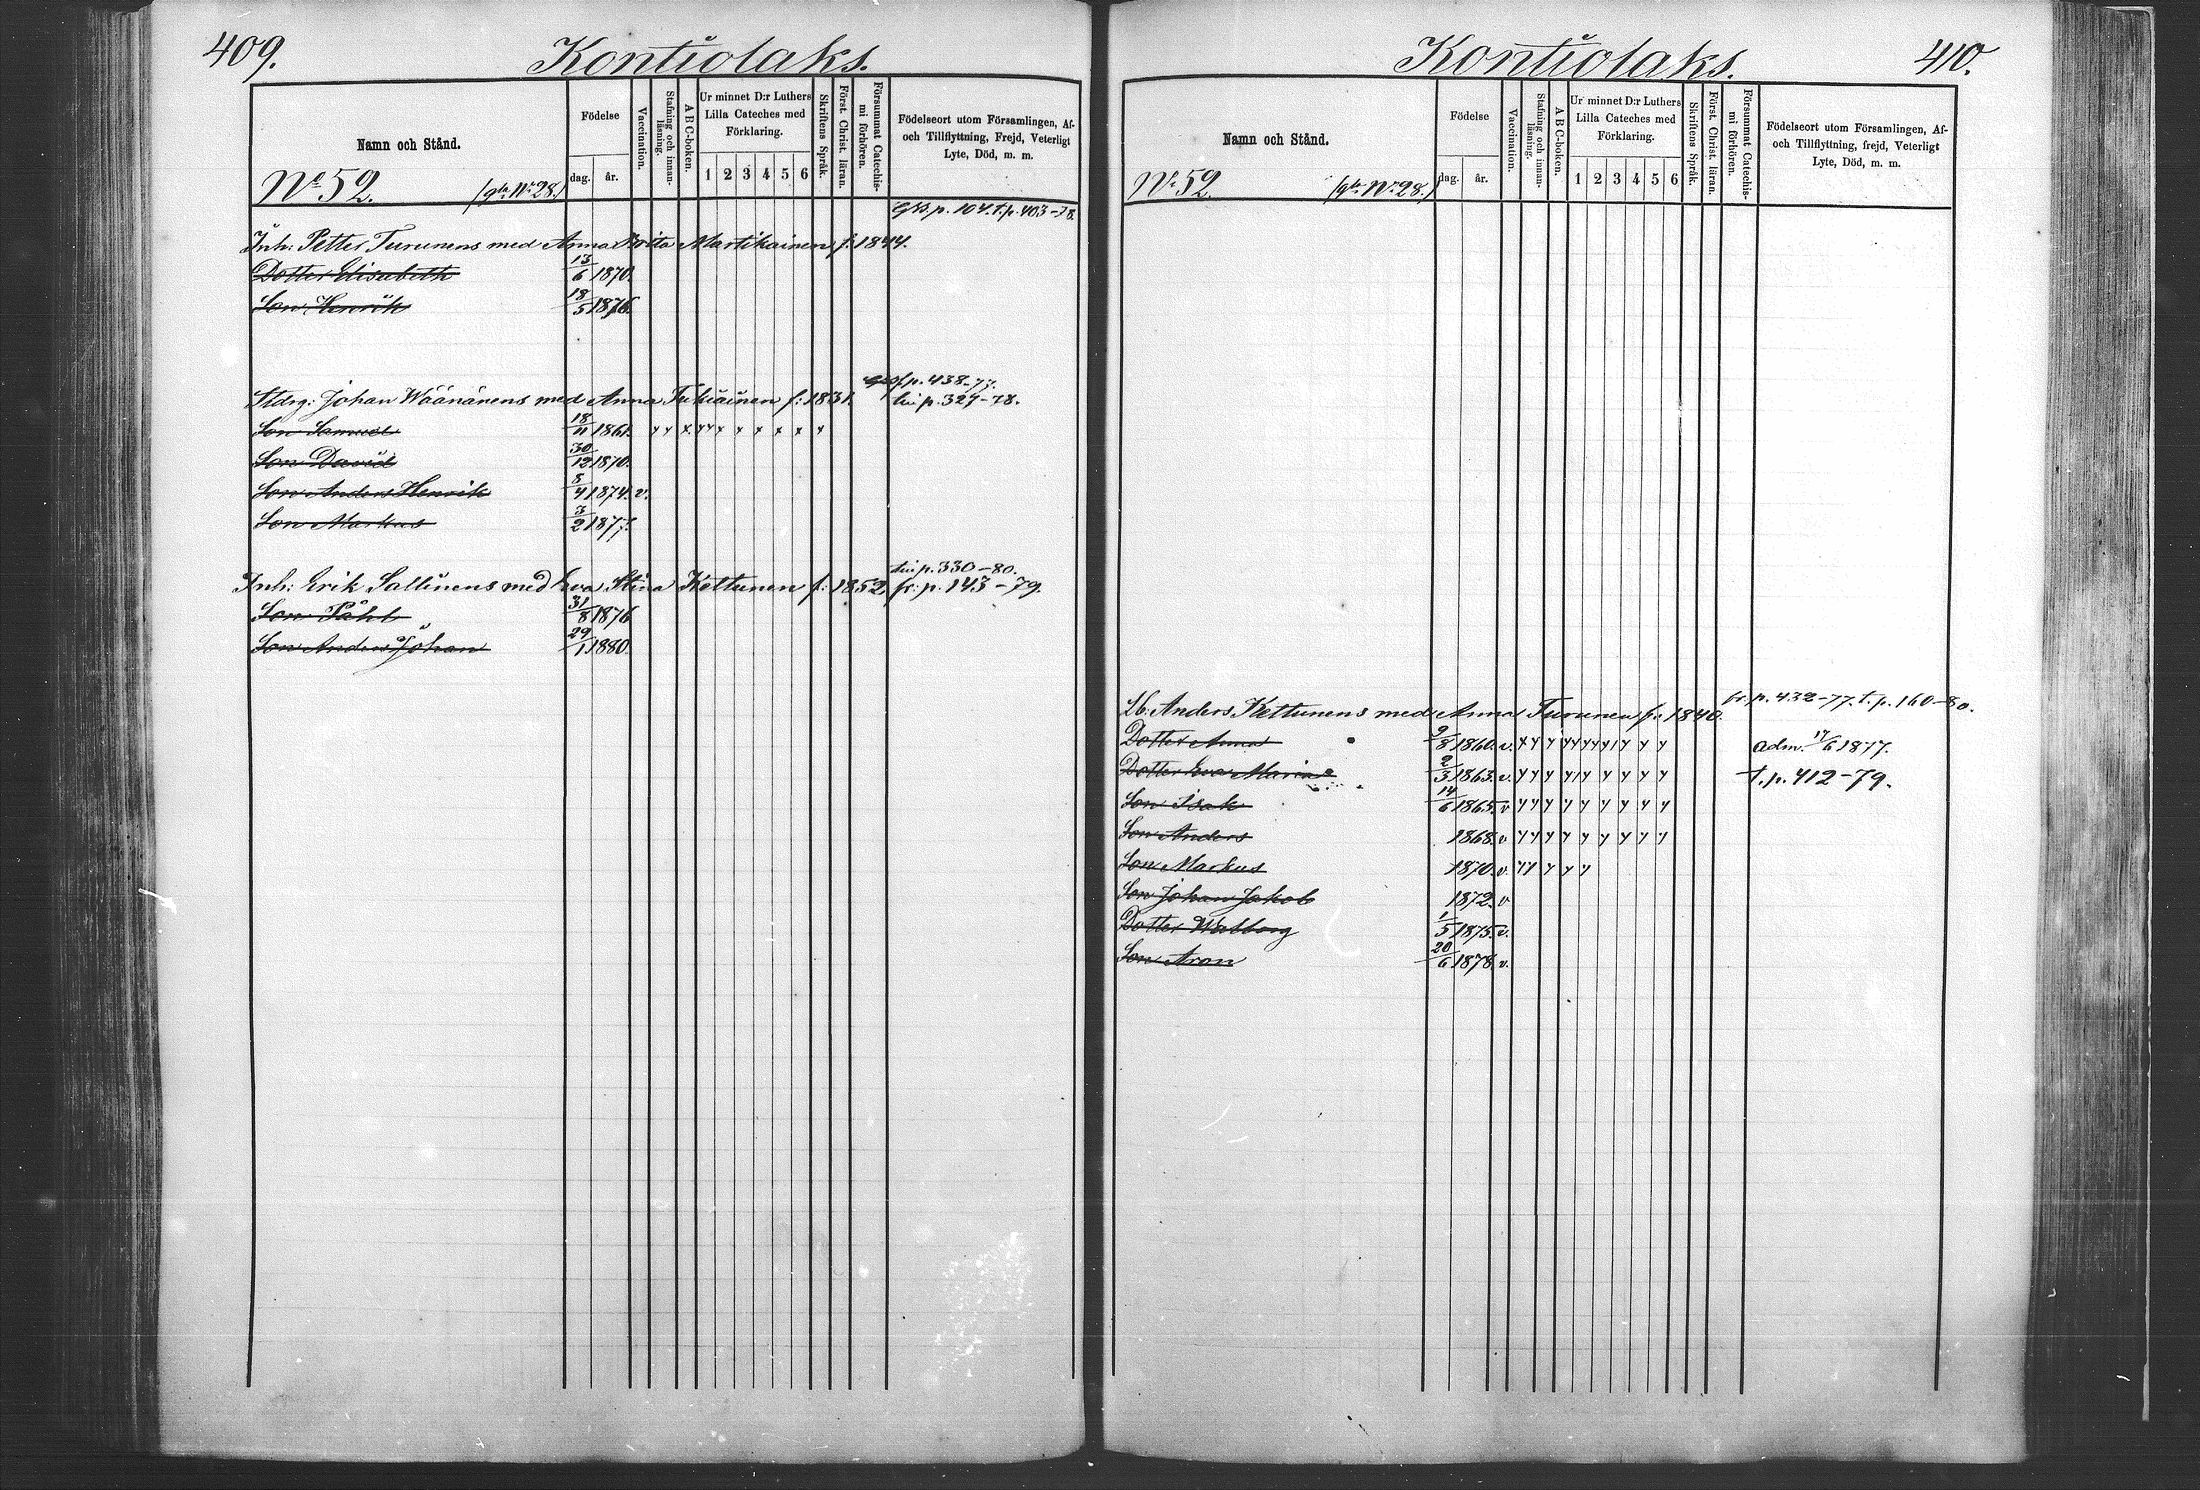 409.
Kontiolaks.
Namn och Stånd.
Födelse
dag. år.
Vaccination.
Stafning och innanläsning.
A B C-boken.
Ur minnet D:r Luthers
Lilla Cateches med
Förklaring.
1 2 3 4 5 6
Skriftens Språk.
Först. Christ. läran.
Försummat Catechismi förhören.
Födelseort utom Församlingen, Af-
och Tillflyttning, Frejd, Veterligt
Lyte, Död, m. m.
No 52. (gla No 28.)
p. 104. t. p. 403-78.
Inh: Petter Turunens med Anna Brita Martikainen f: 1844.
Dotter Elisabeth 13/6 1870.
Son Henrik 18/5 1876.
p. 438-77.
Johan Wäänänens med Anna Tukiainen f: 1831. till p. 327-78.
Son Samuel 18/11 1861.
Son David 30/12 1870.
Son Anders Henrik 8/4 1874. v.
Son Markus 3/2 1877.
till p. 330-80.
Inh: Erik Sallinens med Eva Stina Kettunen f: 1852. fr: p. 143-79.
Son Påhl 31/8 1876
Son Anders Johan 29/1 1880.
Kontiolaks. 410.
Namn och Stånd.
Födelse
dag. år.
Vaccination.
Stafning och innanläsning.
A B C-boken.
Ur minnet D:r Luthers
Lilla Cateches med
Förklaring.
1 2 3 4 5 6
Skriftens Språk.
Först. Christ. läran.
Försummat Catechismi förhören.
Födelseort utom Församlingen, Af-
och Tillflyttning, frejd, Veterligt
Lyte, Död, m. m.
No 52. (gla No 28.)
fr. p. 432-77. t. p. 160-80.
Lb: Anders Kettunens med Anna Turunen f: 1840.
Dotter Anna 9/8 1860. v. adm. 17/6 1877.
Dotter Eva Maria 2/3 1863. v. t. p. 412-79.
Son Isak 14/6 1865. v
Son Anders 1868. v
Son Markus 1870. v.
Son Johan Jakob 1872. v
Dotter Walborg 1/5 1875. v.
Son Aron 20/6 1878. v.